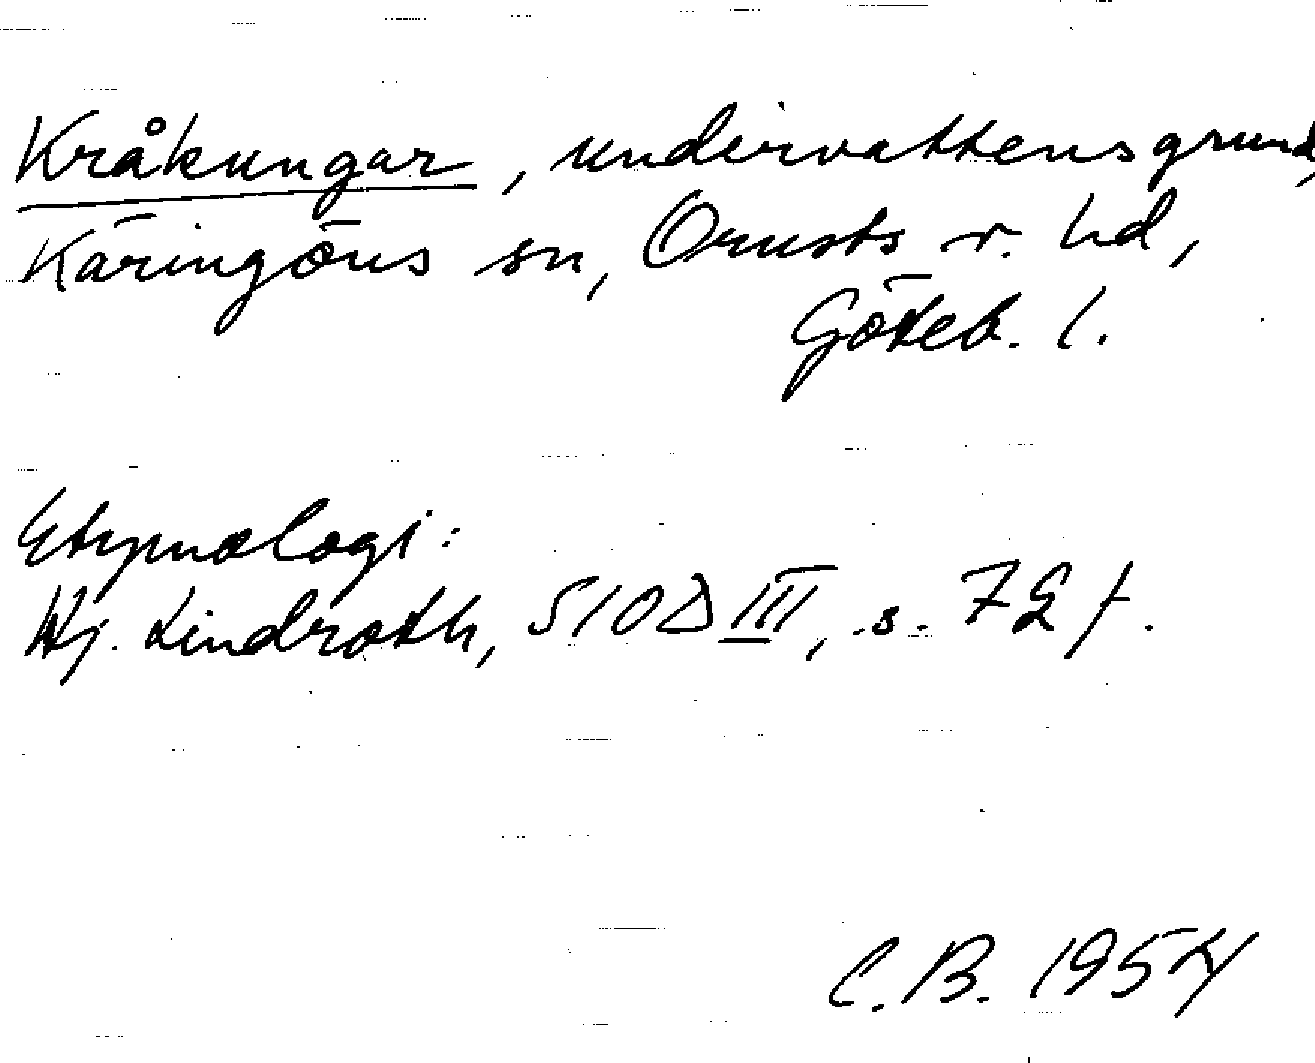 Kråkungar, undervattensgrund,
Käringöns sn, Orusts v. hd,
Göteb. l.
Etymologi:
Hj. Lindroth, SIOD III, s. 72 f.
C.B. 1954